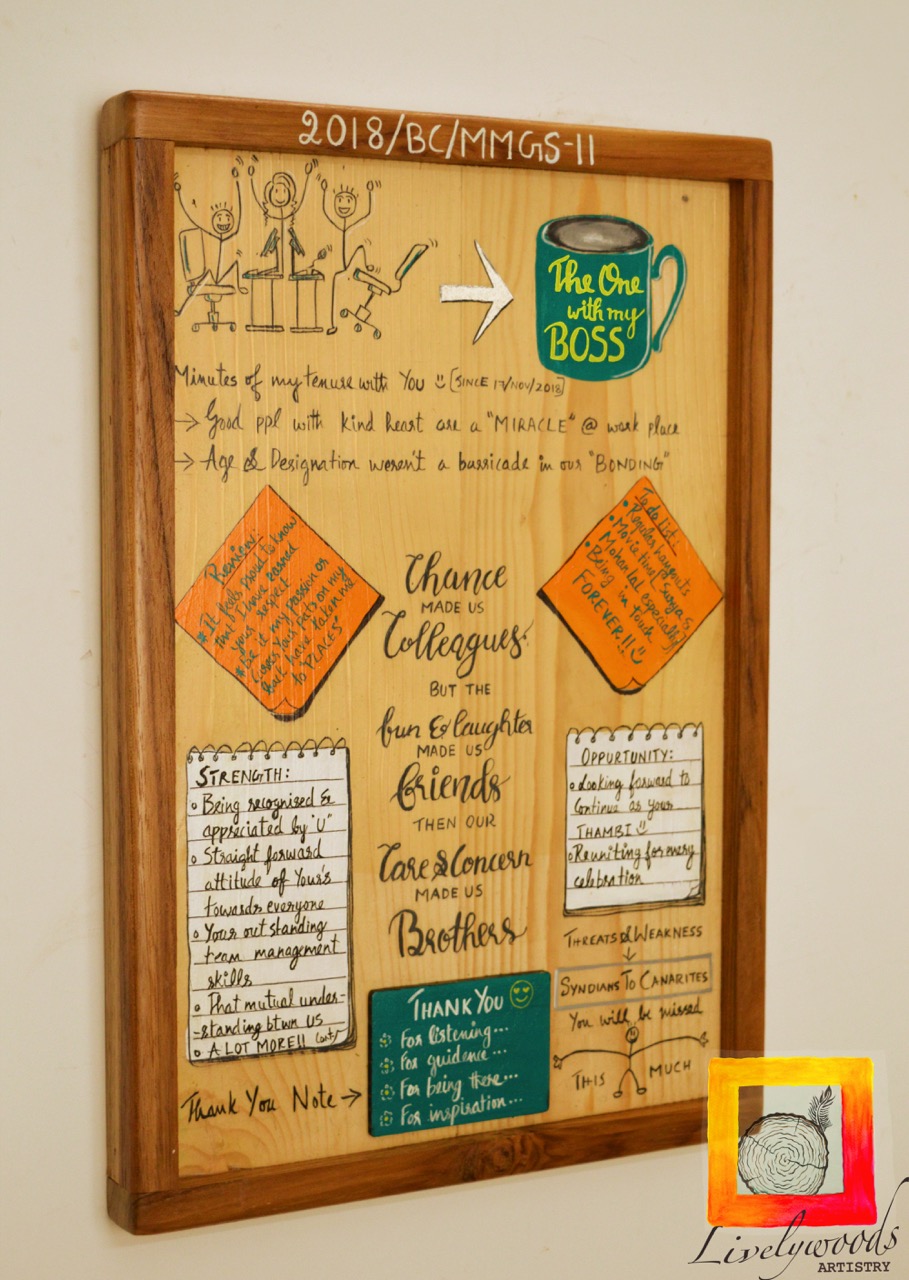 2018/BC/MMGS-II
The One
with my
BOSS
Minutes of my tenure with You [SINCE 17/NOV/2018]
→ Good ppl with kind heart are a "MIRACLE" @ work place
→ Age & Designation weren't a barricade in our "BONDING"
Review:
* It feels proud to know
that I have earned
your respect
* Be it my passion or
Cases your pats on my
back have taken me
to "PLACES"
To do list:
• Regular hangouts
• Movie time (Surya &
Mohan lal especially)
• Being in touch
FOREVER!!!
Chance
MADE US
Colleagues
BUT THE
fun & laughter
MADE US
friends
THEN OUR
Care & Concern
MADE US
Brothers
STRENGTH:
Being recognised &
appreciated by "U"
Straight forward
attitude of Your's
towards everyone
Your out standing
team management
skills
That mutual under-
-standing btwn US
A LOT MORE!!
OPPURTUNITY:
Looking forward to
Continue as your
THAMBI
Reuniting for every
celebration
THREATS & WEAKNESS
SYNDIANS TO CANARITES
You will be missed
THIS MUCH
Thank You Note →
THANK YOU
For listening...
For guidence...
For being there...
For inspiration...
Livelywoods
ARTISTRY